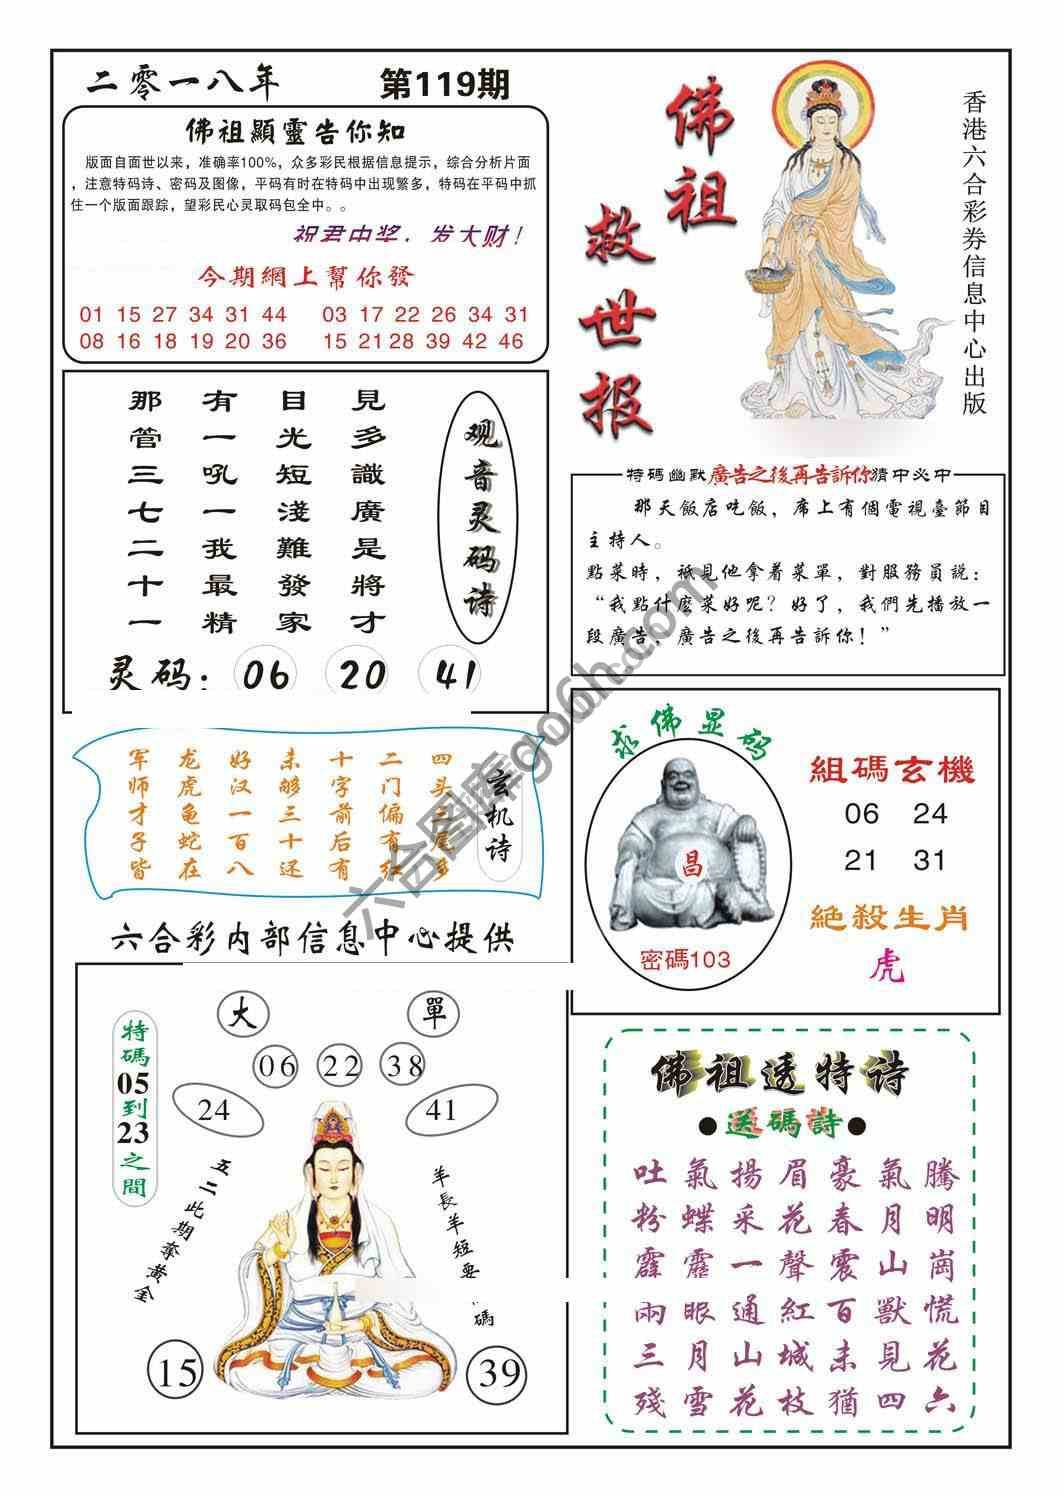 二零一八年 第119期
佛祖顯靈告你知
版面自面世以来，准确率100%，众多彩民根据信息提示，综合分析片面
，注意特码诗、密码及图像，平码有时在特码中出现繁多，特码在平码中抓
住一个版面跟踪，望彩民心灵取码包全中。。
祝君中奖，发大财！
今期網上幫你發
01 15 27 34 31 44 03 17 22 26 34 31
08 16 18 19 20 36 15 21 28 39 42 46
佛祖救世报
香港六合彩券信息中心出版
观音灵码诗
見多識廣是將才
目光短淺難發家
有一吼一我最精
那管三七二十一
灵码：06 20 41
特碼幽默廣告之後再告訴你猜中必中
那天飯店吃飯，席上有個電視臺節目
主持人。
點菜時，祗見他拿着菜單，對服務員説：
“我點什麽菜好呢？好了，我們先播放一
段廣告，廣告之後再告訴你！”
玄机诗
四头三尾多
二门偏有红
十字前后有
未够三十还
好汉一百八
龙虎龟蛇在
军师才子皆
六合彩内部信息中心提供
求佛显码
昌
密碼103
組碼玄機
06 24
21 31
絶殺生肖
虎
大 單
06 22 38
24 41
特碼05到23之間
五二此期奪黃金
羊長羊短要 碼
15 39
佛祖透特诗
●送碼詩●
吐氣揚眉豪氣騰
粉蝶采花春月明
霹靂一聲震山崗
兩眼通紅百獸慌
三月山城未見花
殘雪花枝猶四六
六合图库go6h.com